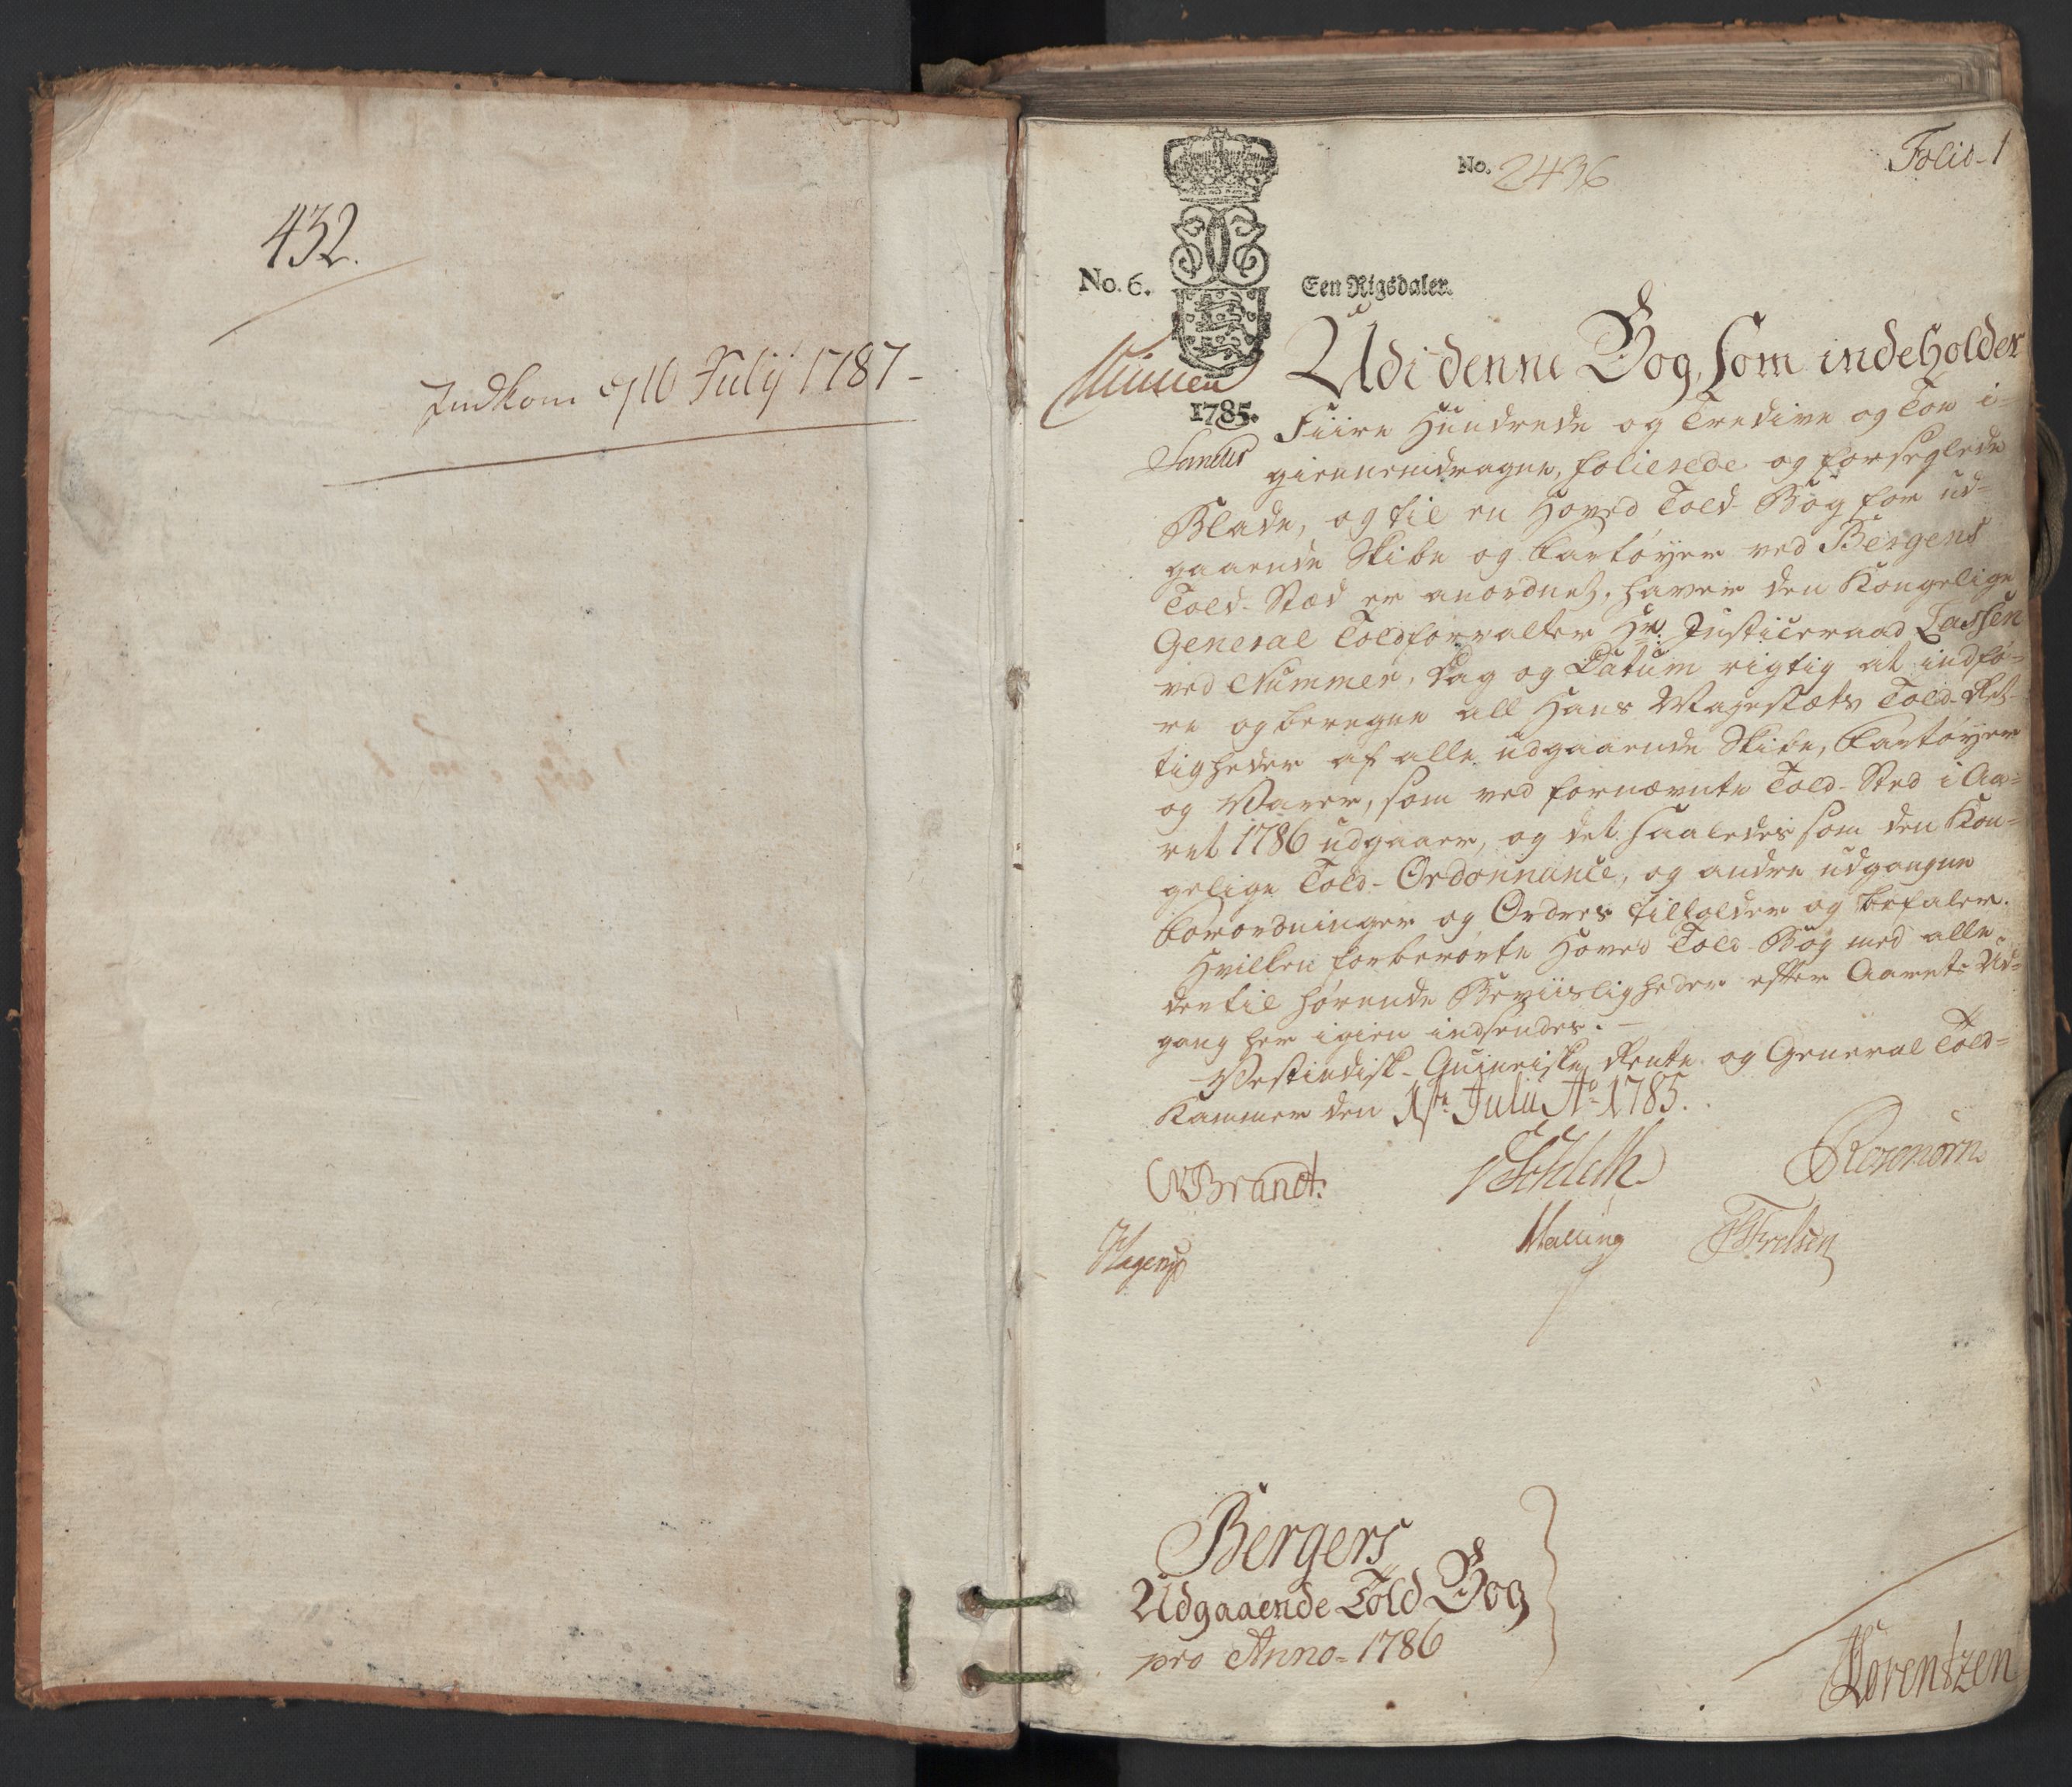 432.
Indkom d 10 Julij 1787 -
No. 2436
Folio - 1
No. 6.
Een Rigsdaler.
1785.
Udi denne Bog, som indeholder
Fiire Hundrede og Tredive og Toe i-
giennemdragne, folierede og forseglede
Blade, og til en Hoved Told-Bog for ud-
gaaende Skibe og Fartøyer ved Bergens
Told-Stæd er anordnet, haver den Kongelige
General Toldforvalter Hr. Justiceraad Lassen
ved Nummer, Dag og Datum rigtig at indfø-
re og beregne all Hans Majestæts Told-Ret-
tigheder af alle udgaaende Skibe, Fartøyer
og Varer, som ved fornævnte Told-Sted i Aa-
ret 1786 udgaaer, og det saaledes som den Kon-
gelige Told-Ordonnance, og andre udgangne
Forordninger og Ordres tilholder og befaler.
Hvilken forberørte Hoved Told-Bog med alle
dertil hørende Beviisligheder efter Aarets Ud-
gang her igien indsendes. -
Vestindisk-Guineiske Rente og General Told-
Kammer den 1ste Julii Ao 1785.
Brandt.
Rosenørn
Hagerup
Malling
Bergens
Udgaaende Told Bog
pro Anno - 1786
Lorentzen